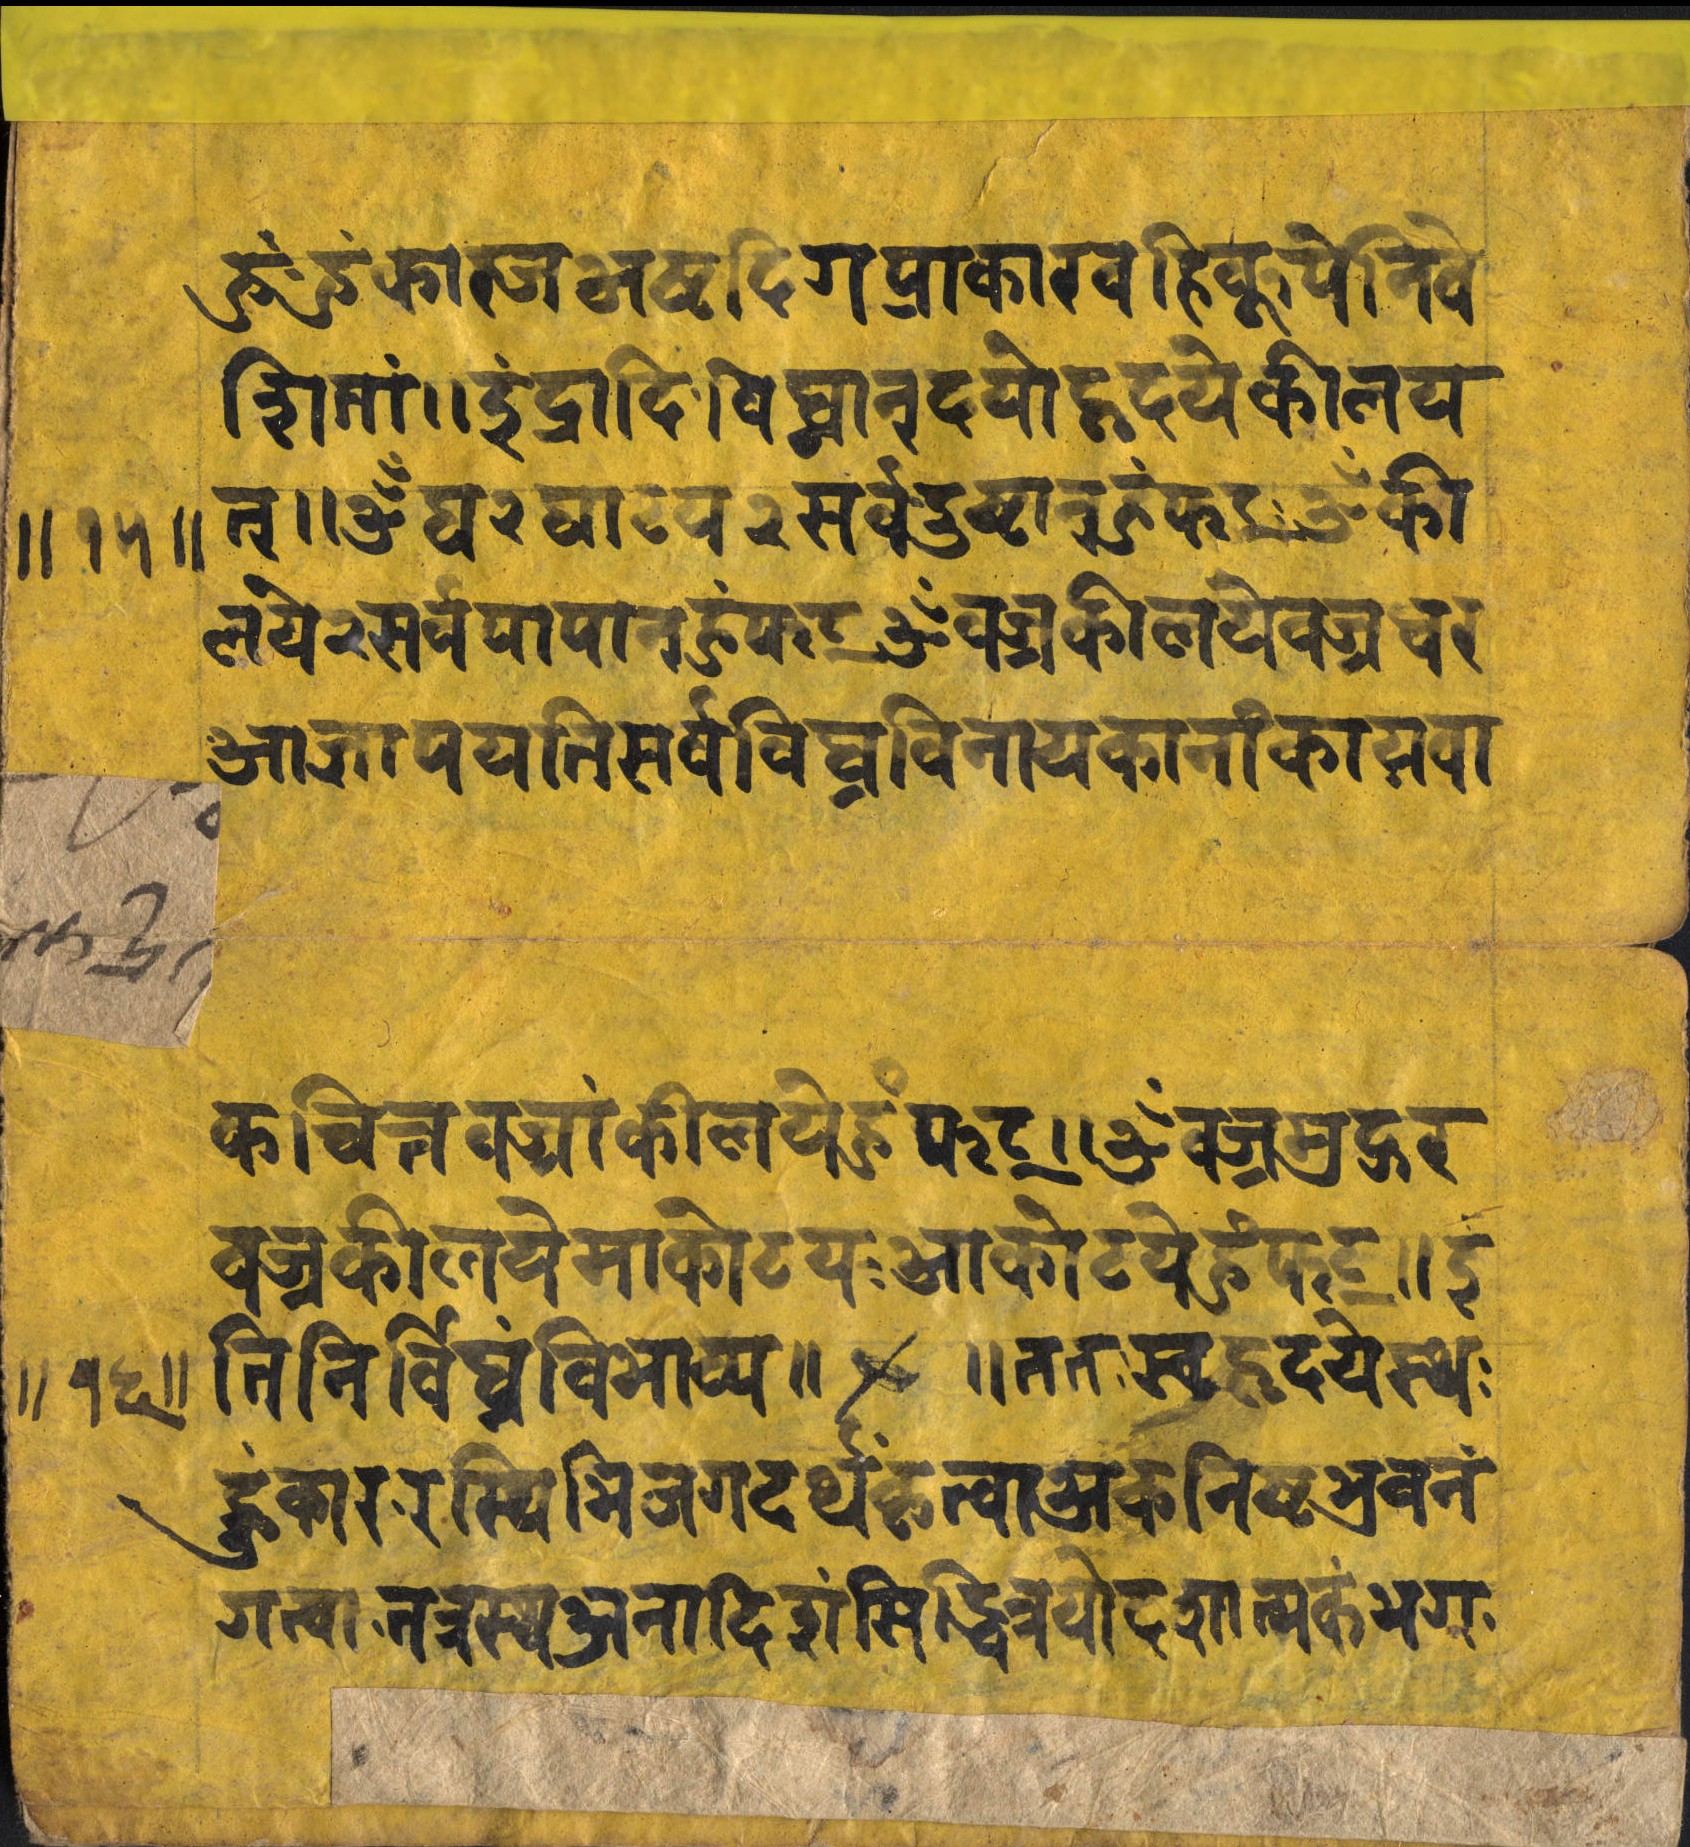 हुं हुं कारज अष्टदिगप्राकारवहिकूपे निवे
शितां ॥ इंद्रादि विघ्नान् दयो हृदये कीलय
॥ १५ ॥ त् ॥ ॐ घ २ घाटय २ सर्वदुष्टान् हुं फट् ॐ की
लये २ सर्वपापान् हुं फट् ॐ वज्रकीलये वज्रधर
आज्ञापयति सर्वविघ्नविनायकानां कायवा
कचित्तवज्रां कीलये हुं फट् ॥ ॐ वज्रमुद्गर
वज्रकीलये माकोटयः आकोटये हुं फट् ॥ इ
॥ १६ ॥ ति निर्विघ्नं विभाव्य ॥ ॥ ततः स्वहृदयेस्थः
हुंकार रस्मिभि जगदर्थं कृत्वा अकनिष्टभुवनं
गत्वा तत्रस्थ अनादिशंसिद्धि त्रयोदशात्मकं भग